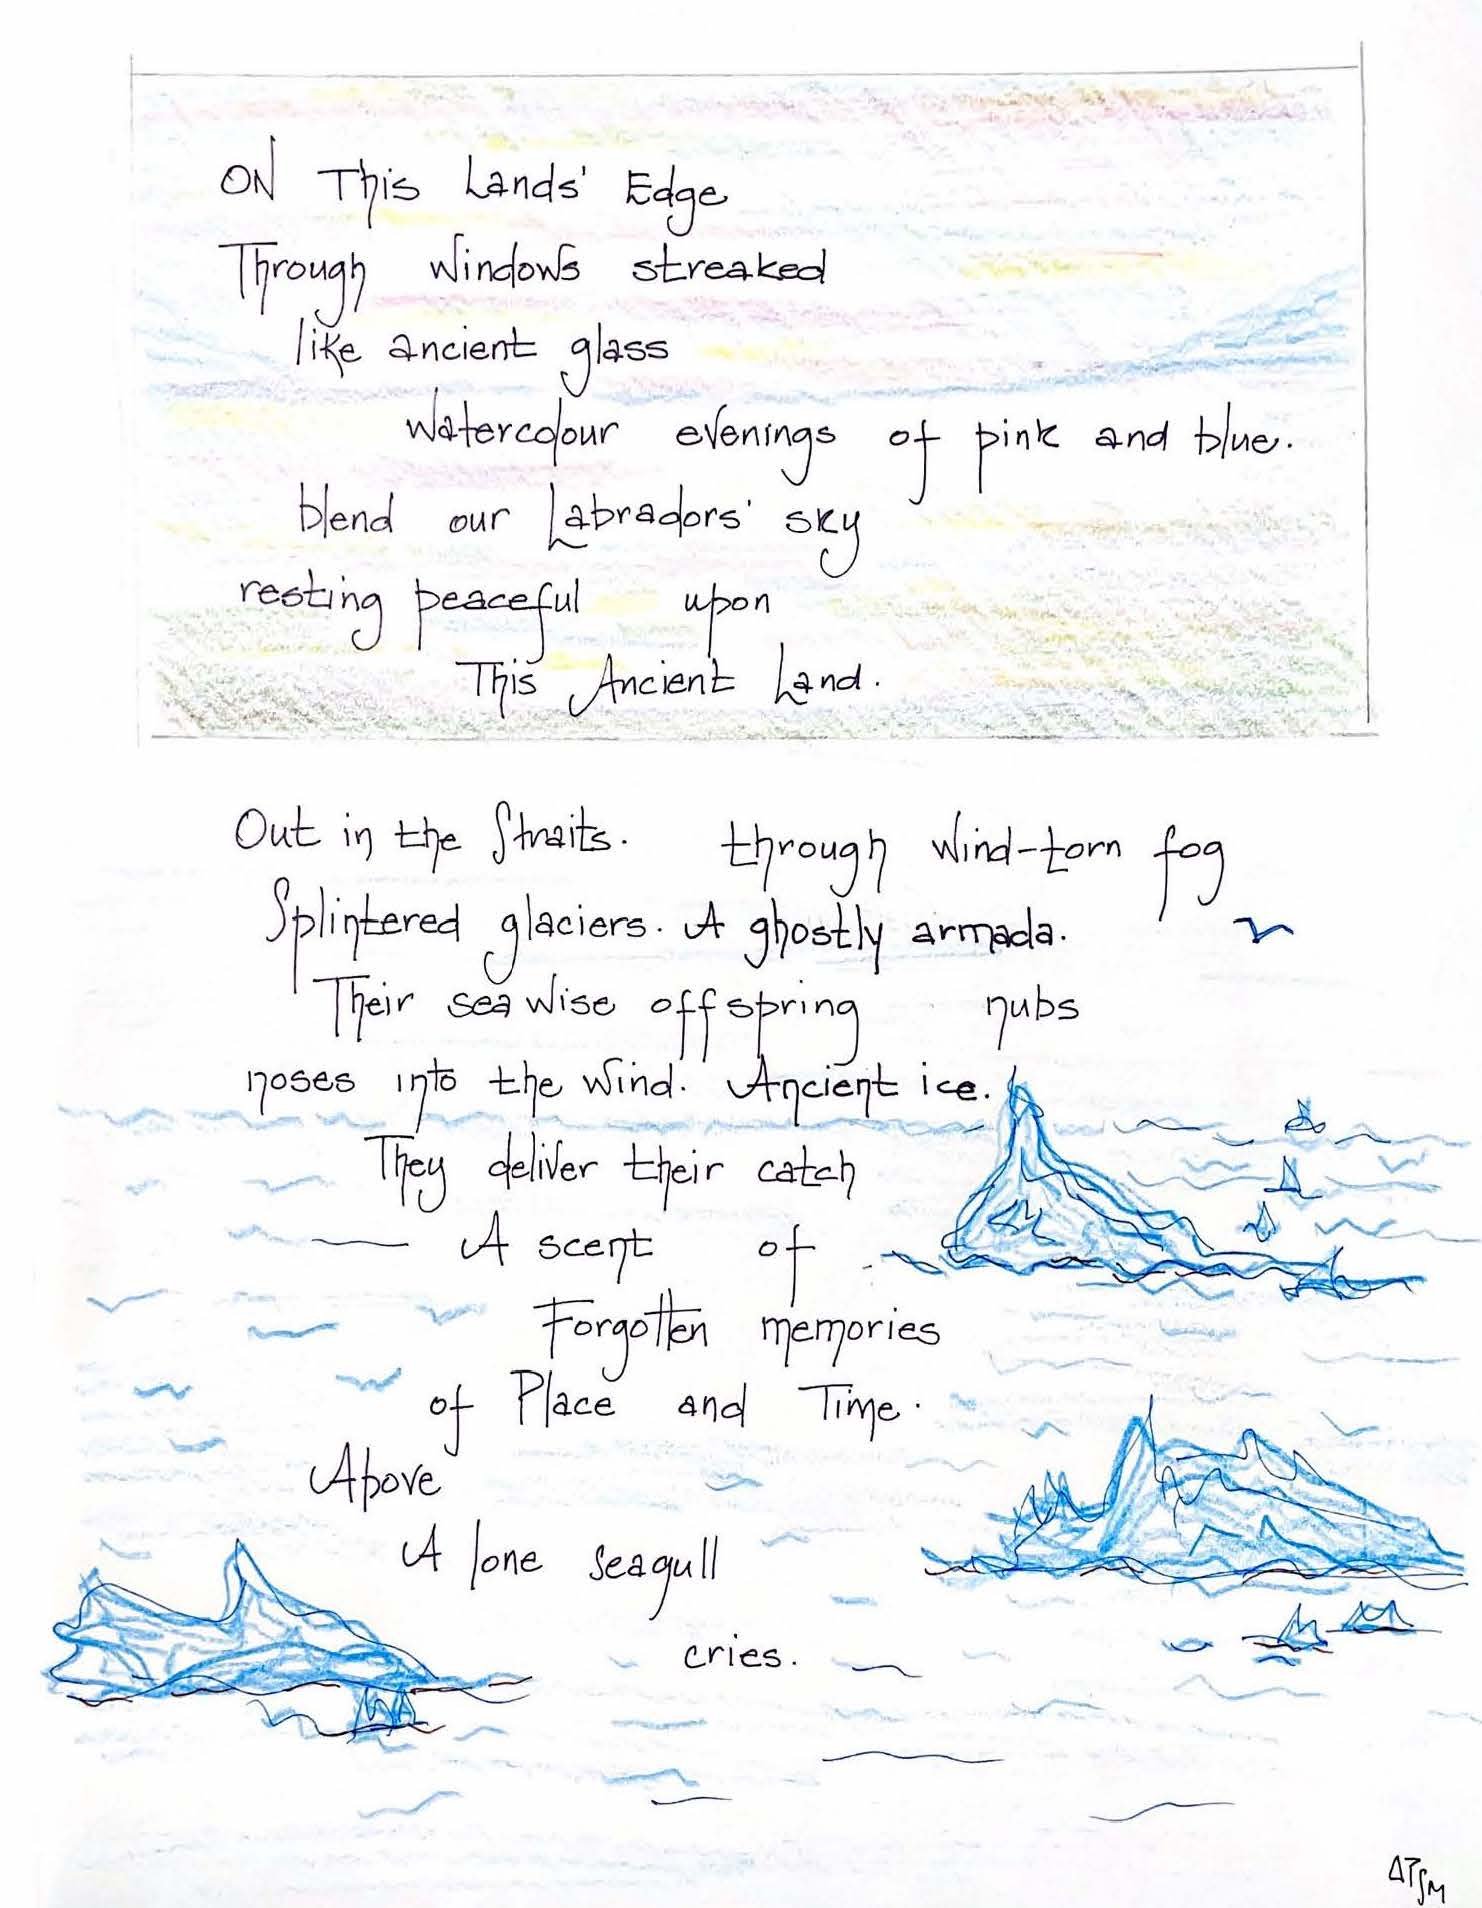 ON This Lands' Edge
Through Windows streaked
like ancient glass
Watercolour evenings of pink and blue.
blend our Labradors' sky
resting peaceful upon
This Ancient Land.
Out in the Straits. through Wind-torn fog
Splintered glaciers. A ghostly armada.
Their sea wise offspring nubs
noses into the Wind. Ancient ice.
They deliver their catch
— A scent of
Forgotten memories
of Place and Time.
Above
A lone seagull
cries.